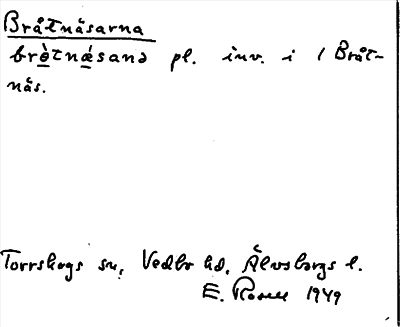 Bråtnäsarna
brὲtnǽsanə pl. inv. i 1 Bråt-
näs.
Torrskogs sn, Vedbo hd, Älvsborgs l.
E. Rosell 1949